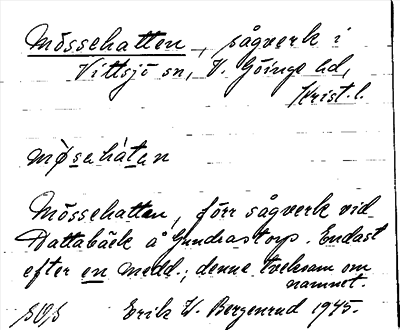 Mössehatten, sågverk i
Vittsjö sn, V. Göinge hd,
Krist. l.
mø̀sahátan
Mössehatten, förr sågverk vid
Dattabäck å Gundrastorp. Endast
efter en medd.; denne tveksam om
namnet.
SOS Erik W. Bergenrud 1945.